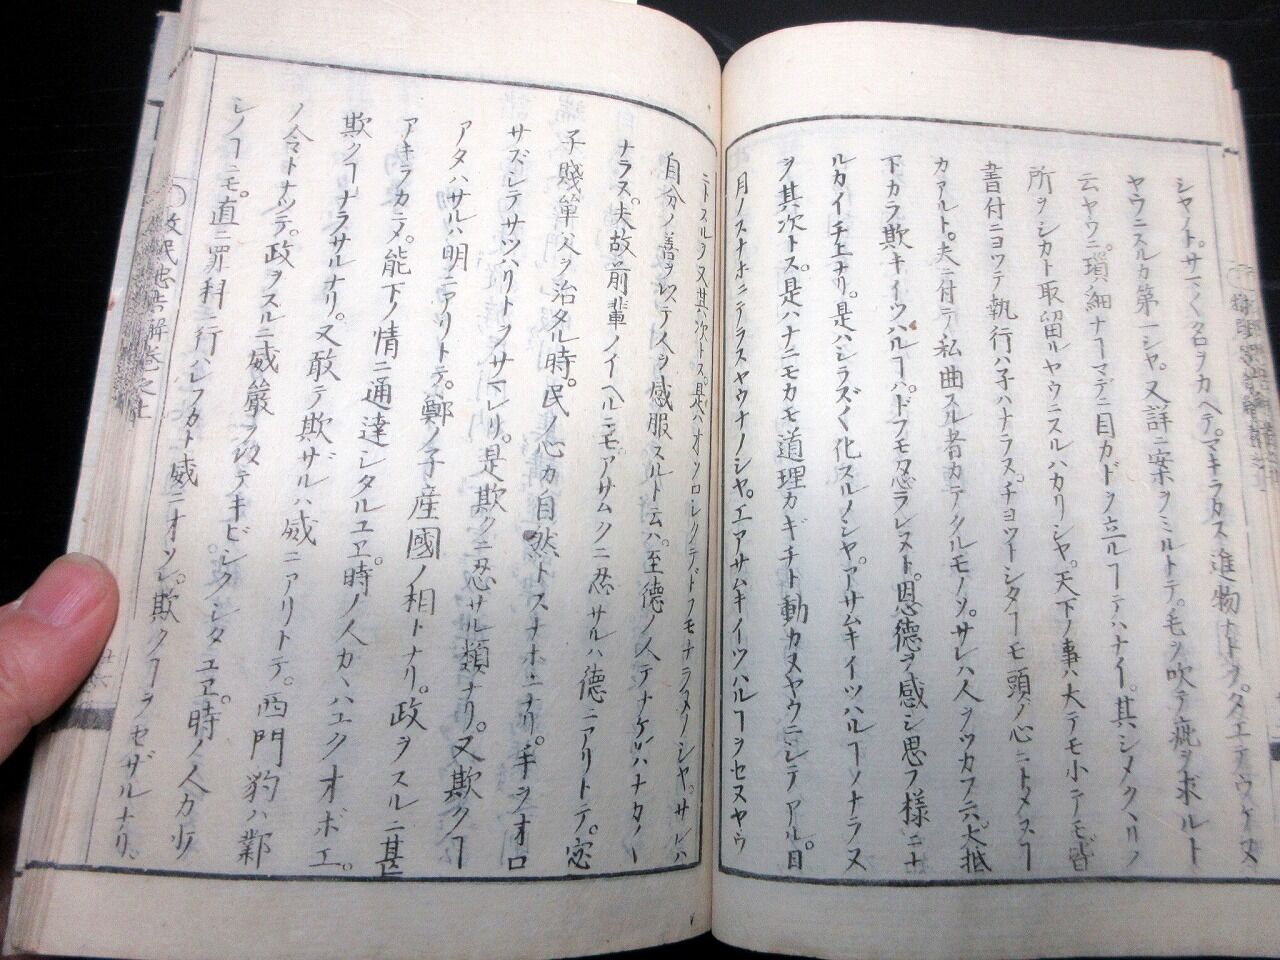 シヤノト。サマ〱名ヲカヘテ。マキラカス進物ナトヲ。タエテウケヌ
ヤウニスルカ第一シヤ。又詳ニ案ヲミルトテ。毛ヲ吹テ疵ヲ求ルト
云ヤウニ。瑣細ナヿマテニ目カドヲ立ルヿテハナイ。其シメクヽリノ
所ヲシカト取留ルヤウニスルハカリシヤ。天下ノ事ハ大テモ小テモ皆
書付ニヨツテ執行ハ子ハナラス。チヨツトシタヿモ頭ノ心ニトメヌヿ
カアルト。夫ニ付テ私曲スル者カテクルモノソ。サレハ人ヲツカフ六大抵
下カラ欺キイツハルヿハ。ドフモ忍ラレヌト。恩德ヲ感シ思フ様ニナ
ルカイチ上ナリ。是ハシラズ〱化スルノシヤ。アサムキイツハルヿノナラヌ
ヲ其次トス。是ハナニモカモ道理カギチト動カヌヤウニシテアル。日
月ノスナホニテラスヤウナノシヤ。エアサムキイツハルヿヲセヌヤウ
ニトスルヲ又其次トス。是ハオソロシクテドフモナラヌノシヤ。サレハ
自分ノ善ヲ以テ人ヲ感服スルト云ハ。至德ノ人テナケレハナカ〱
ナラス。夫故前輩ノイヘルニモ。アサムクニ忍サルハ德ニアリトテ。宓
子賤單父ヲ治タル時。民ノ心カ自然トスナホニナリ。手ヲオロ
サズシテサツハリトヲサマレリ。是欺クニ忍サル類ナリ。又欺クヿ
アタハサルハ明ニアリトテ。鄭ノ子産國ノ相トナリ。政ヲスルニ甚
アキラカニメ。能下ノ情ニ通達シタルユヱ。時ノ人カヽハエクオボエ。
欺クヿナラサルナリ。又敢テ欺ザルハ威ニアリトテ。西門豹ハ鄴
ノ令トナツテ。政ヲスルニ威嚴ヲ以テキビシクシタユヱ。時ノ人カ少
シノヿモ。直ニ罪科ニ行ハレフカト威ニオソレ。欺クヿヲセザルナリ。
牧民忠告解卷之上
廿六